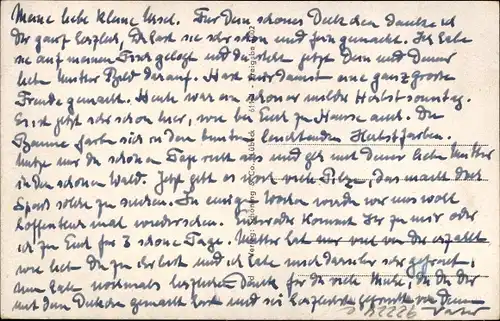 Meine liebe kleine Ursel. Für Dein schönes Deckchen danke ich
Dir ganz herzlich, Du hast sie sehr schön und fein gemacht. Ich habe
sie auf meinen Tisch gelegt und da steht jetzt Dein und Deiner
lieben Mutter Bild darauf. Hast mir damit eine ganz große
Freude gemacht. Heute war ein schöner milder Herbstsonntag.
Es ist jetzt sehr schön hier, wie bei Euch zu Hause auch. Die
Bäume färben sich in den bunten leuchtenden Herbstfarben.
Nutze nur die schönen Tage recht aus und geh mit Deiner lieben Mutter
in den schönen Wald. Jetzt gibt es dort viele Pilze, das macht doch
Spass solche zu suchen. In einigen Wochen werden wir uns wohl
hoffentlich mal wiedersehen. Entweder kommt Ihr zu mir oder
ich zu Euch für 3 schöne Tage. Mutter hat mir viel von Dir erzählt
wie lieb Du zu ihr bist und ich habe mich darüber sehr gefreut,
nun habe nochmals herzlichen Dank für die viele Mühe, die Du Dir
mit dem Deckchen gemacht hast und sei herzlichst gegrüßt von Deinem
Vater